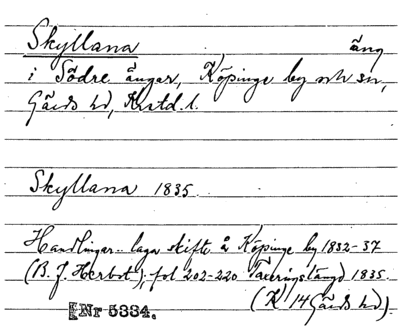 Skyllana äng
i Södre ängar, Köpinge by och sn,
Gärds hd, Krstd. l.
Skyllana 1835.
Handlingar.. laga skifte å Köpinge by 1832-37
(B. J. Herbst); fol 202-220 1835.
(K 14 Gärds hd).
Nr 5334.